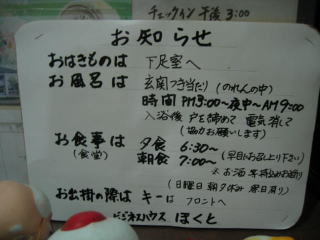 チェックイン 午後 3:00
お知らせ
おはきものは 下足室へ
お風呂は 玄関つき当たり(のれんの中)
時間 PM3:00~夜中~AM9:00
入浴後 戸を締めて 電気消して
(協力お願いします)
お食事は 夕食 6:30~
(食堂) 朝食 7:00~ (早目にお召し上り下さい)
※ お酒等持込お断り
(日曜日 朝夕休み 祭日有り)
お出掛の際は キーは フロントへ
ビジネスハウス ほくと